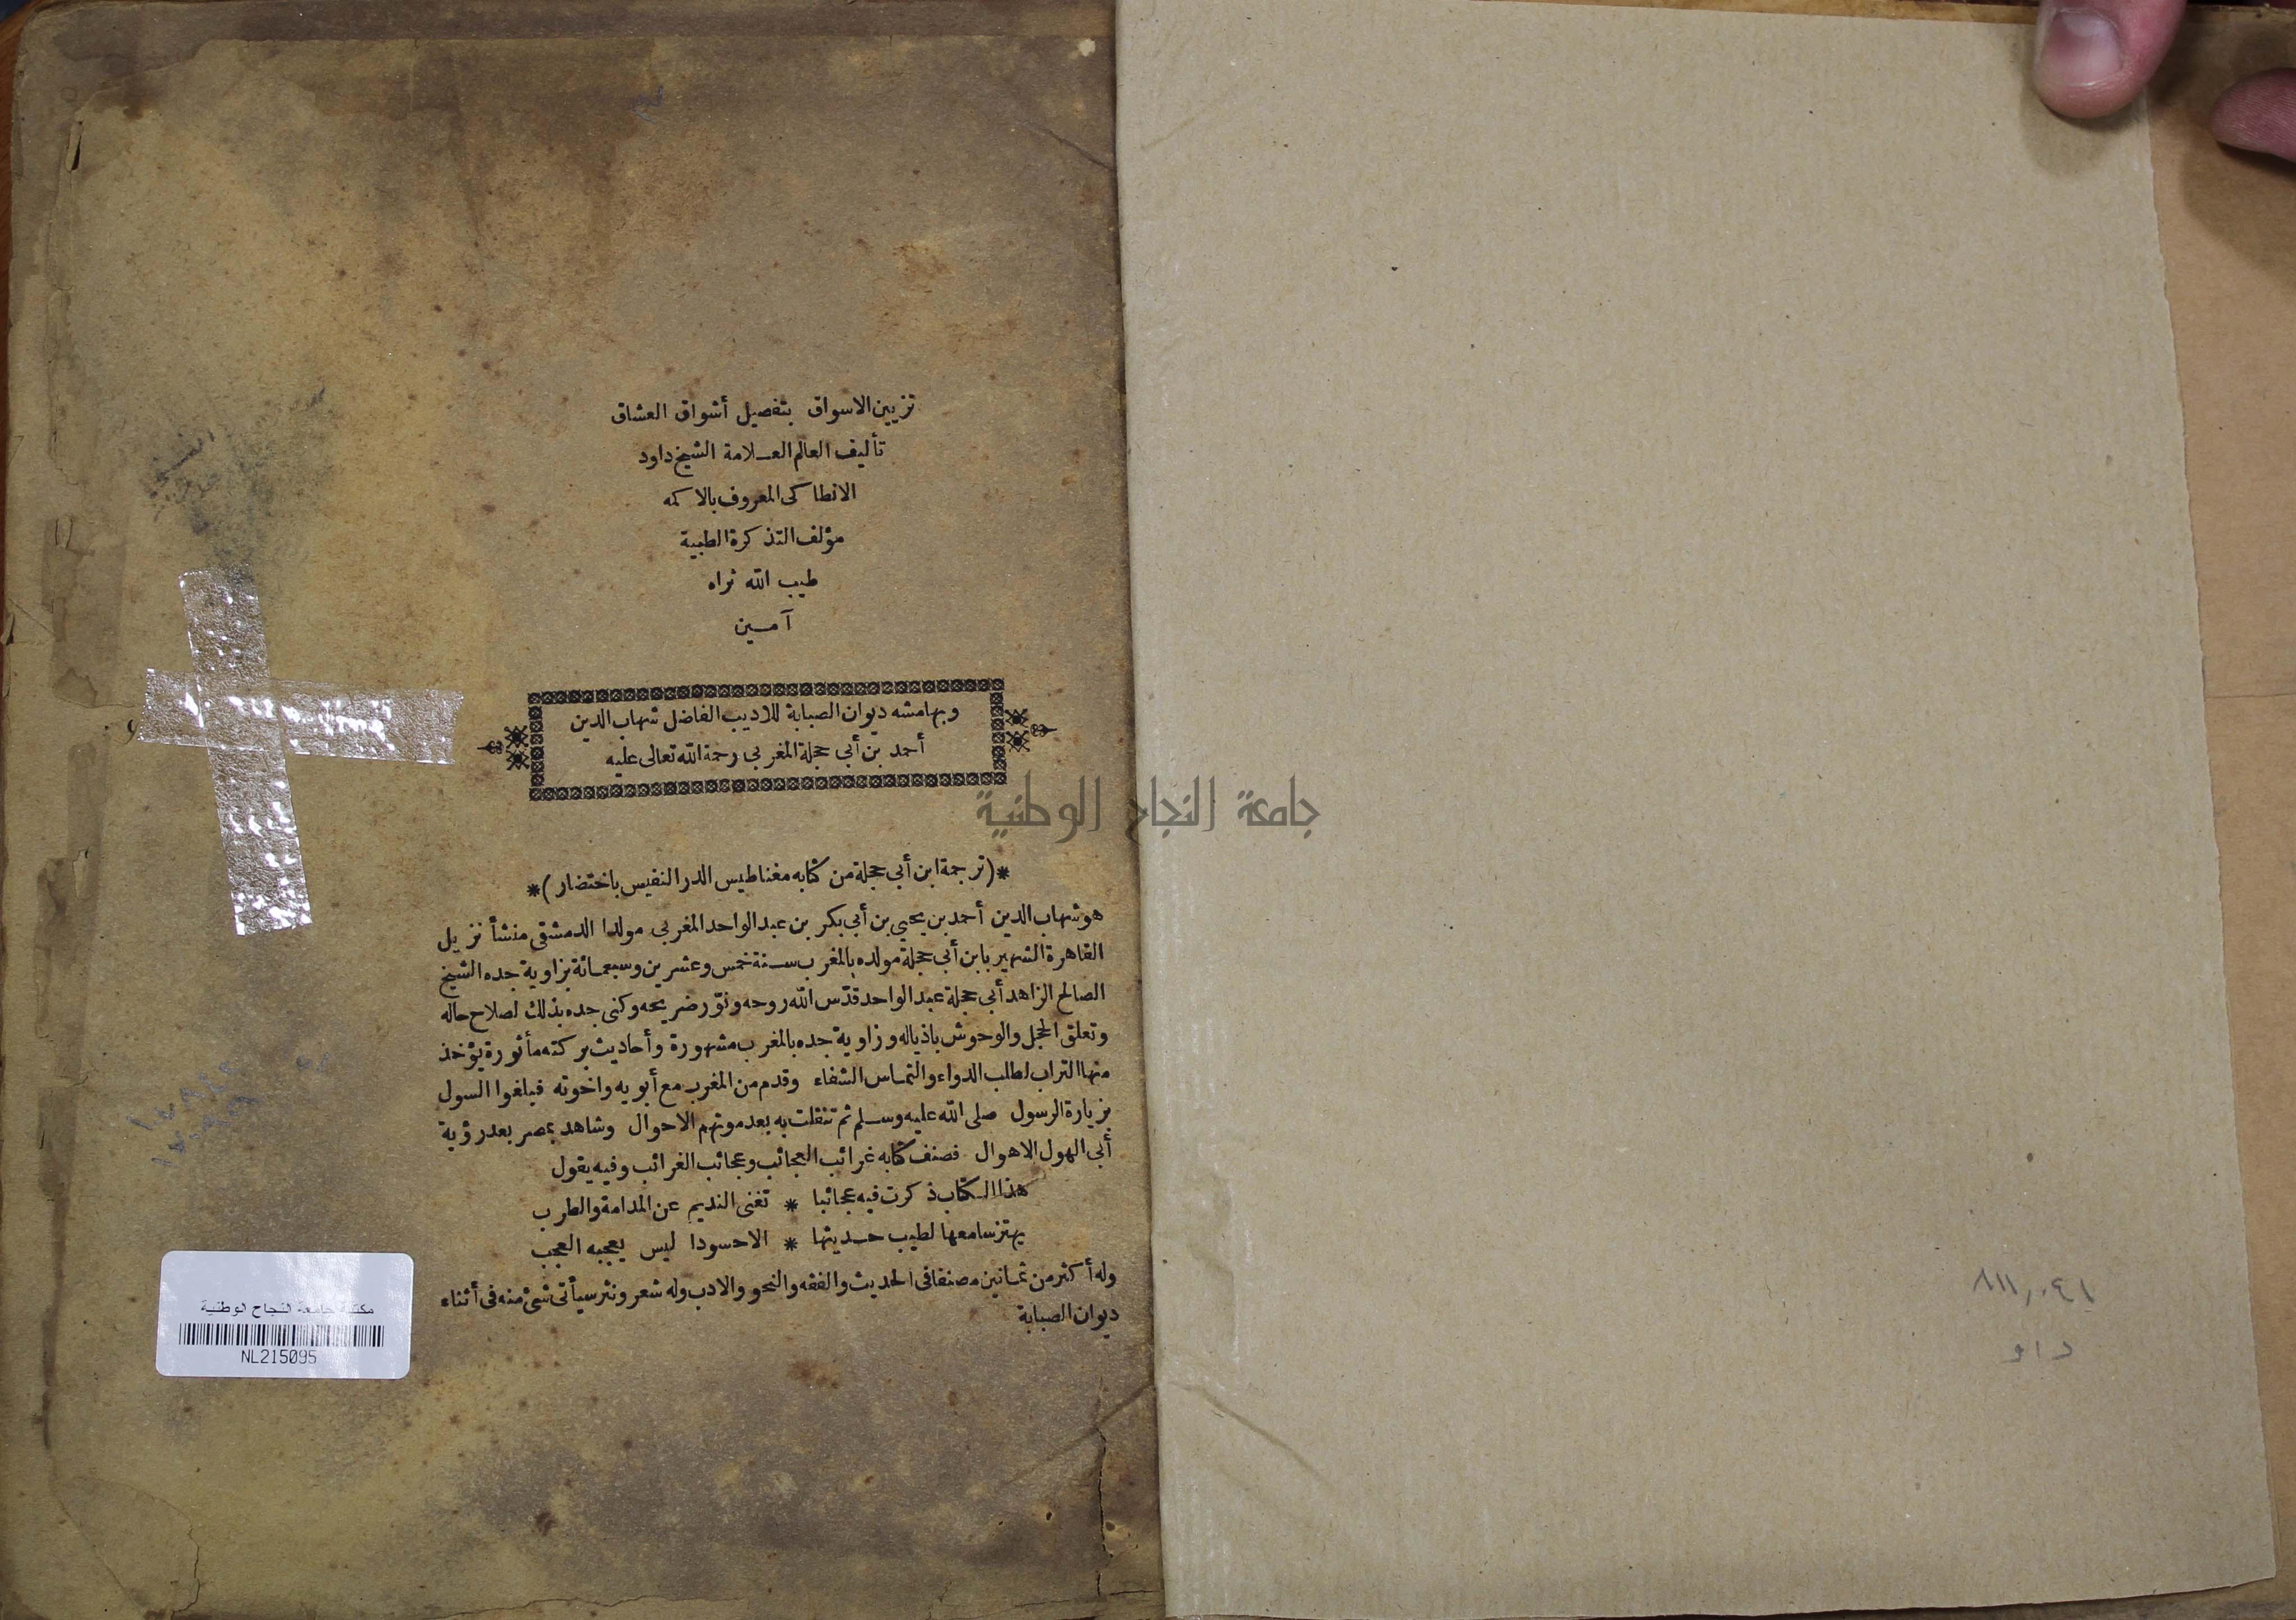 تزيين الاسواق بتفصيل أشواق العشاق
تأليف العالم العـلامة الشيخ داود
الانطاكى المعروف بالاكمه
مؤلف التذكرة الطبية
طيب الله ثراه
آمـين
وبهامشه ديوان الصبابة للاديب الفاضل شهاب الدين
أحمد بن أبي حجلة المغربي رحمة الله تعالى عليه
جامعة النجاح الوطنية
*(ترجمة ابن أبي حجلة من كتابه مغناطيس الدر النفيس باختضار)*
هو شهاب الدين أحمد بن يحيي بن أبي بكر بن عبد الواحد المغربي مولدا الدمشقى منشأ نزيل
القاهرة الشهير بابن أبي حجلة مولده بالمغرب سـنة خمس وعشرين وسبعمائة بزاوية جده الشيخ
الصالح الزاهد أبي حجلة عبد الواحد قدّس الله روحه ونوّر ضريحه وكنى جده بذلك لصلاح حاله
وتعلق الحجل والوحوش باذياله وزاوية جده بالمغرب مشهورة وأحاديث بركته مأثورة يؤخذ
منها التراب لطلب الدواء والتماس الشفاء وقدم من المغرب مع أبويه واخوته فبلغوا السول
بزيارة الرسول صلى الله عليه وسـلم ثم تنقلت به بعد موتهم الاحوال وشاهد بمصر بعد رؤية
أبى الهول الاهوال فصنف كتابه غرائب العجائب وعجائب الغرائب وفيه يقول
هذا الـكتاب ذكرت فيه عجائبا * تغنى النديم عن المدامة والطرب
يهتز سامعها لطيب حـديثها * الا حسودا ليس يعجبه العجب
وله أكثر من ثمانين مصنفا فى الحديث والفقه والنحو والادب وله شعر ونثر سيأتى شئ منه فى أثناء
ديوان الصبابة
مكتبة جامعة النجاح الوطنية
NL215095
٨١١,٠٤١
داو